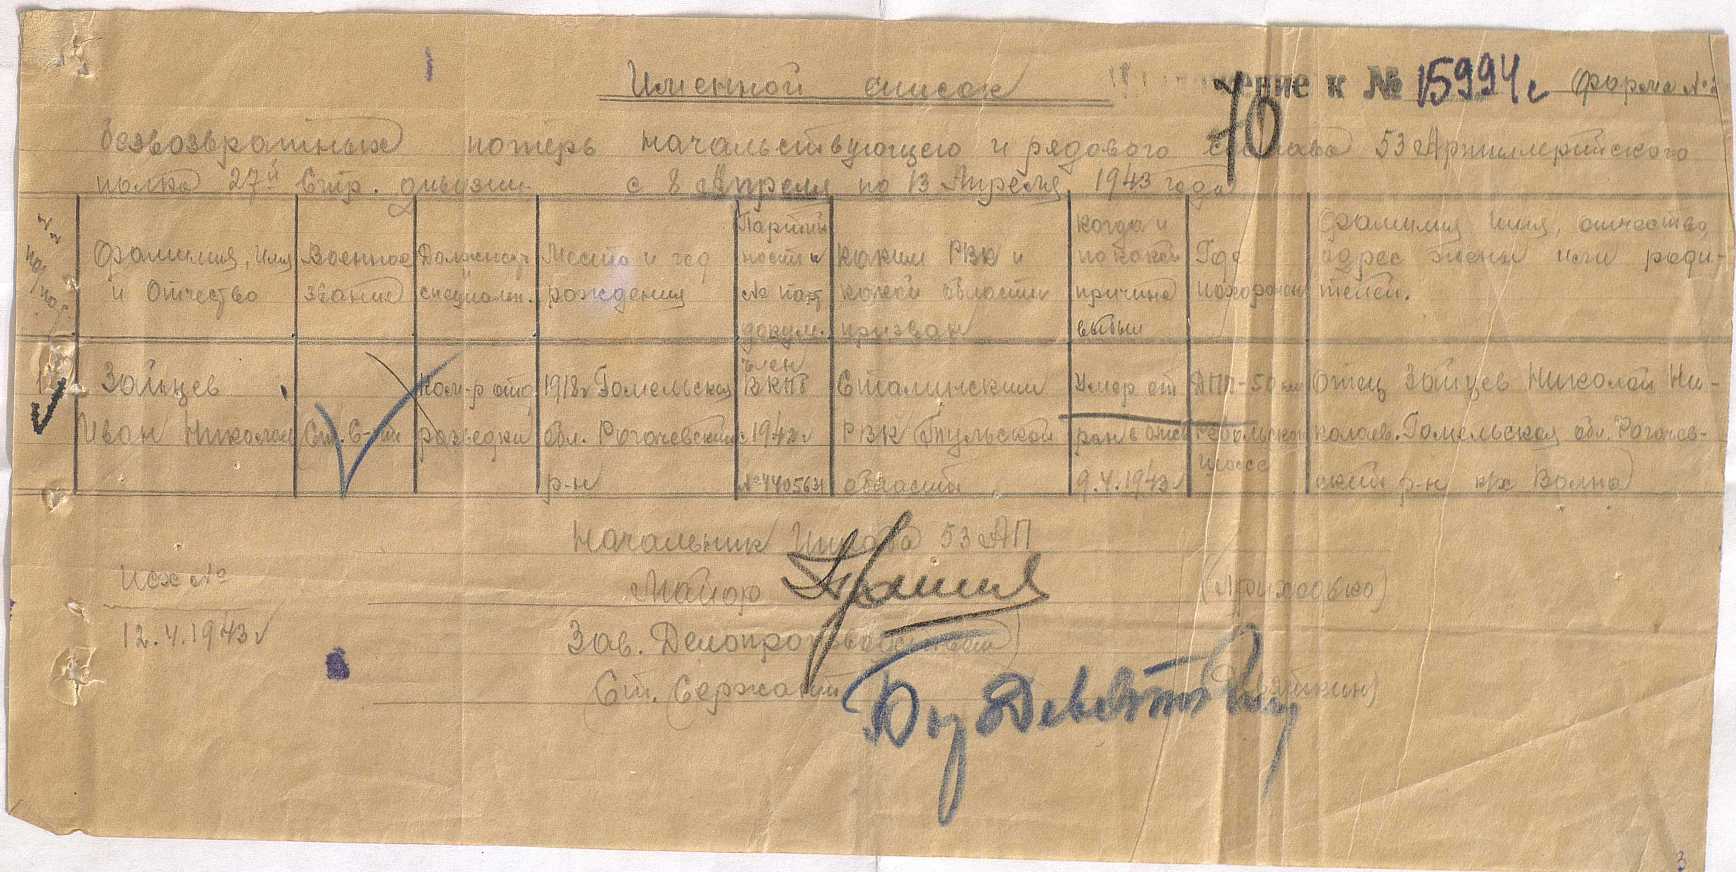 Именной список
ение к № 15994с Форма №2
70
безвозвратных потерь начальствующего и рядового состава 53 Артиллерийского
полка 27й Стр. дивизии с 8 Апреля по 13 Апреля 1943 года
№№ по/по
Фамилия, имя и Отчество
Военное звание
Должность специальн.
Место и год рождения
Партийность и № парт докум.
Каким РВК и какой области призван
Когда и по какой причине выбыл
Где похоронен
Фамилия имя, отчество, адрес жены или родителей.
Зайцев
Иван Николаев
Ст. С-нт
Ком-р отд разведки
1918г Гомельская обл. Рогачевский р-н
член ВКПб 1942г №4405631
Сталинским РВК Тульской области
Умер от ран 9.4.1943г
50 км шоссе
Отец Зайцев Николай Николаев. Гомельская обл. Рогачевский р-н Волна
Начальник Штаба 53 АП
Исх №
Майор (Приходько)
12.4.1943г
Зав. Делопроизводством
Ст. Сержант
3